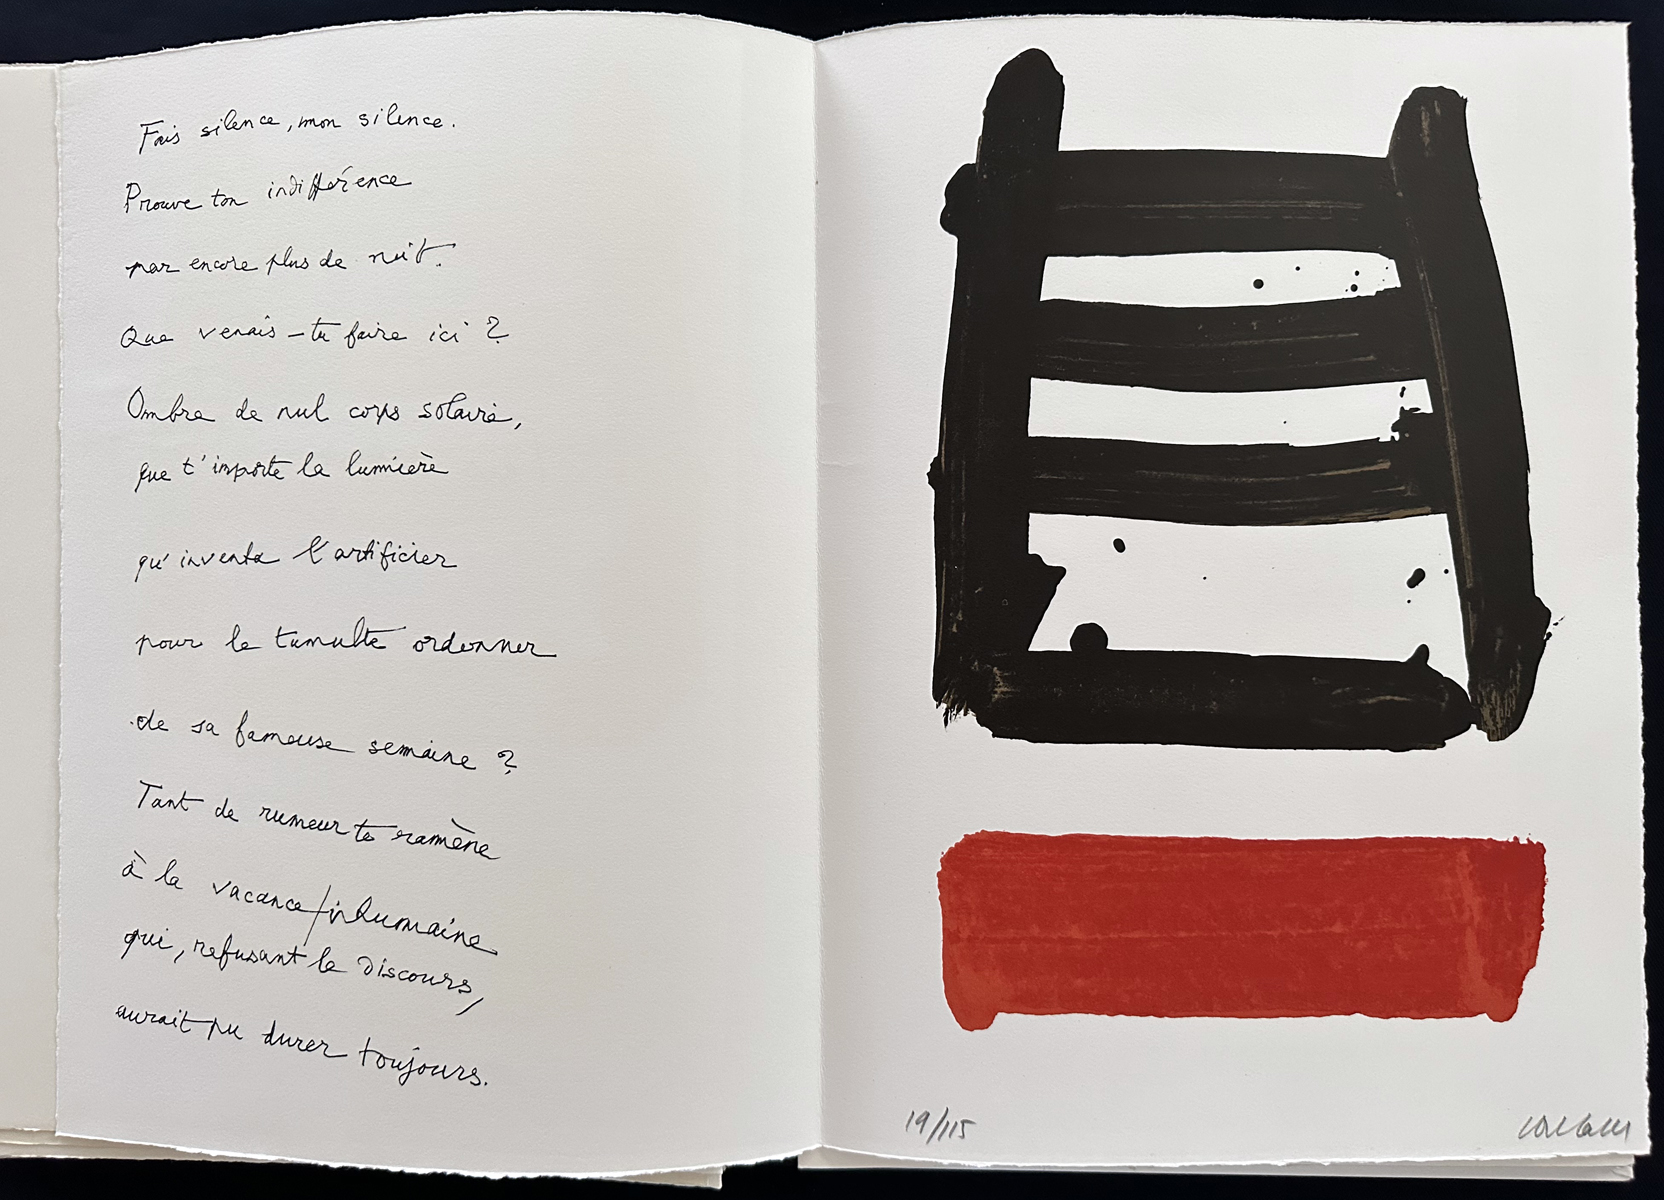 Fais silence, mon silence.
Prouve ton indifférence
par encore plus de nuit.
Que venais-tu faire ici ?
Ombre de nul corps solaire,
que t'importe la lumière
qu'inventa l'artificier
pour le tumulte ordonner
de sa fameuse semaine ?
Tant de rumeur te ramène
à la vacance/inhumaine
qui, refusant le discours,
aurait pu durer toujours.
19/115